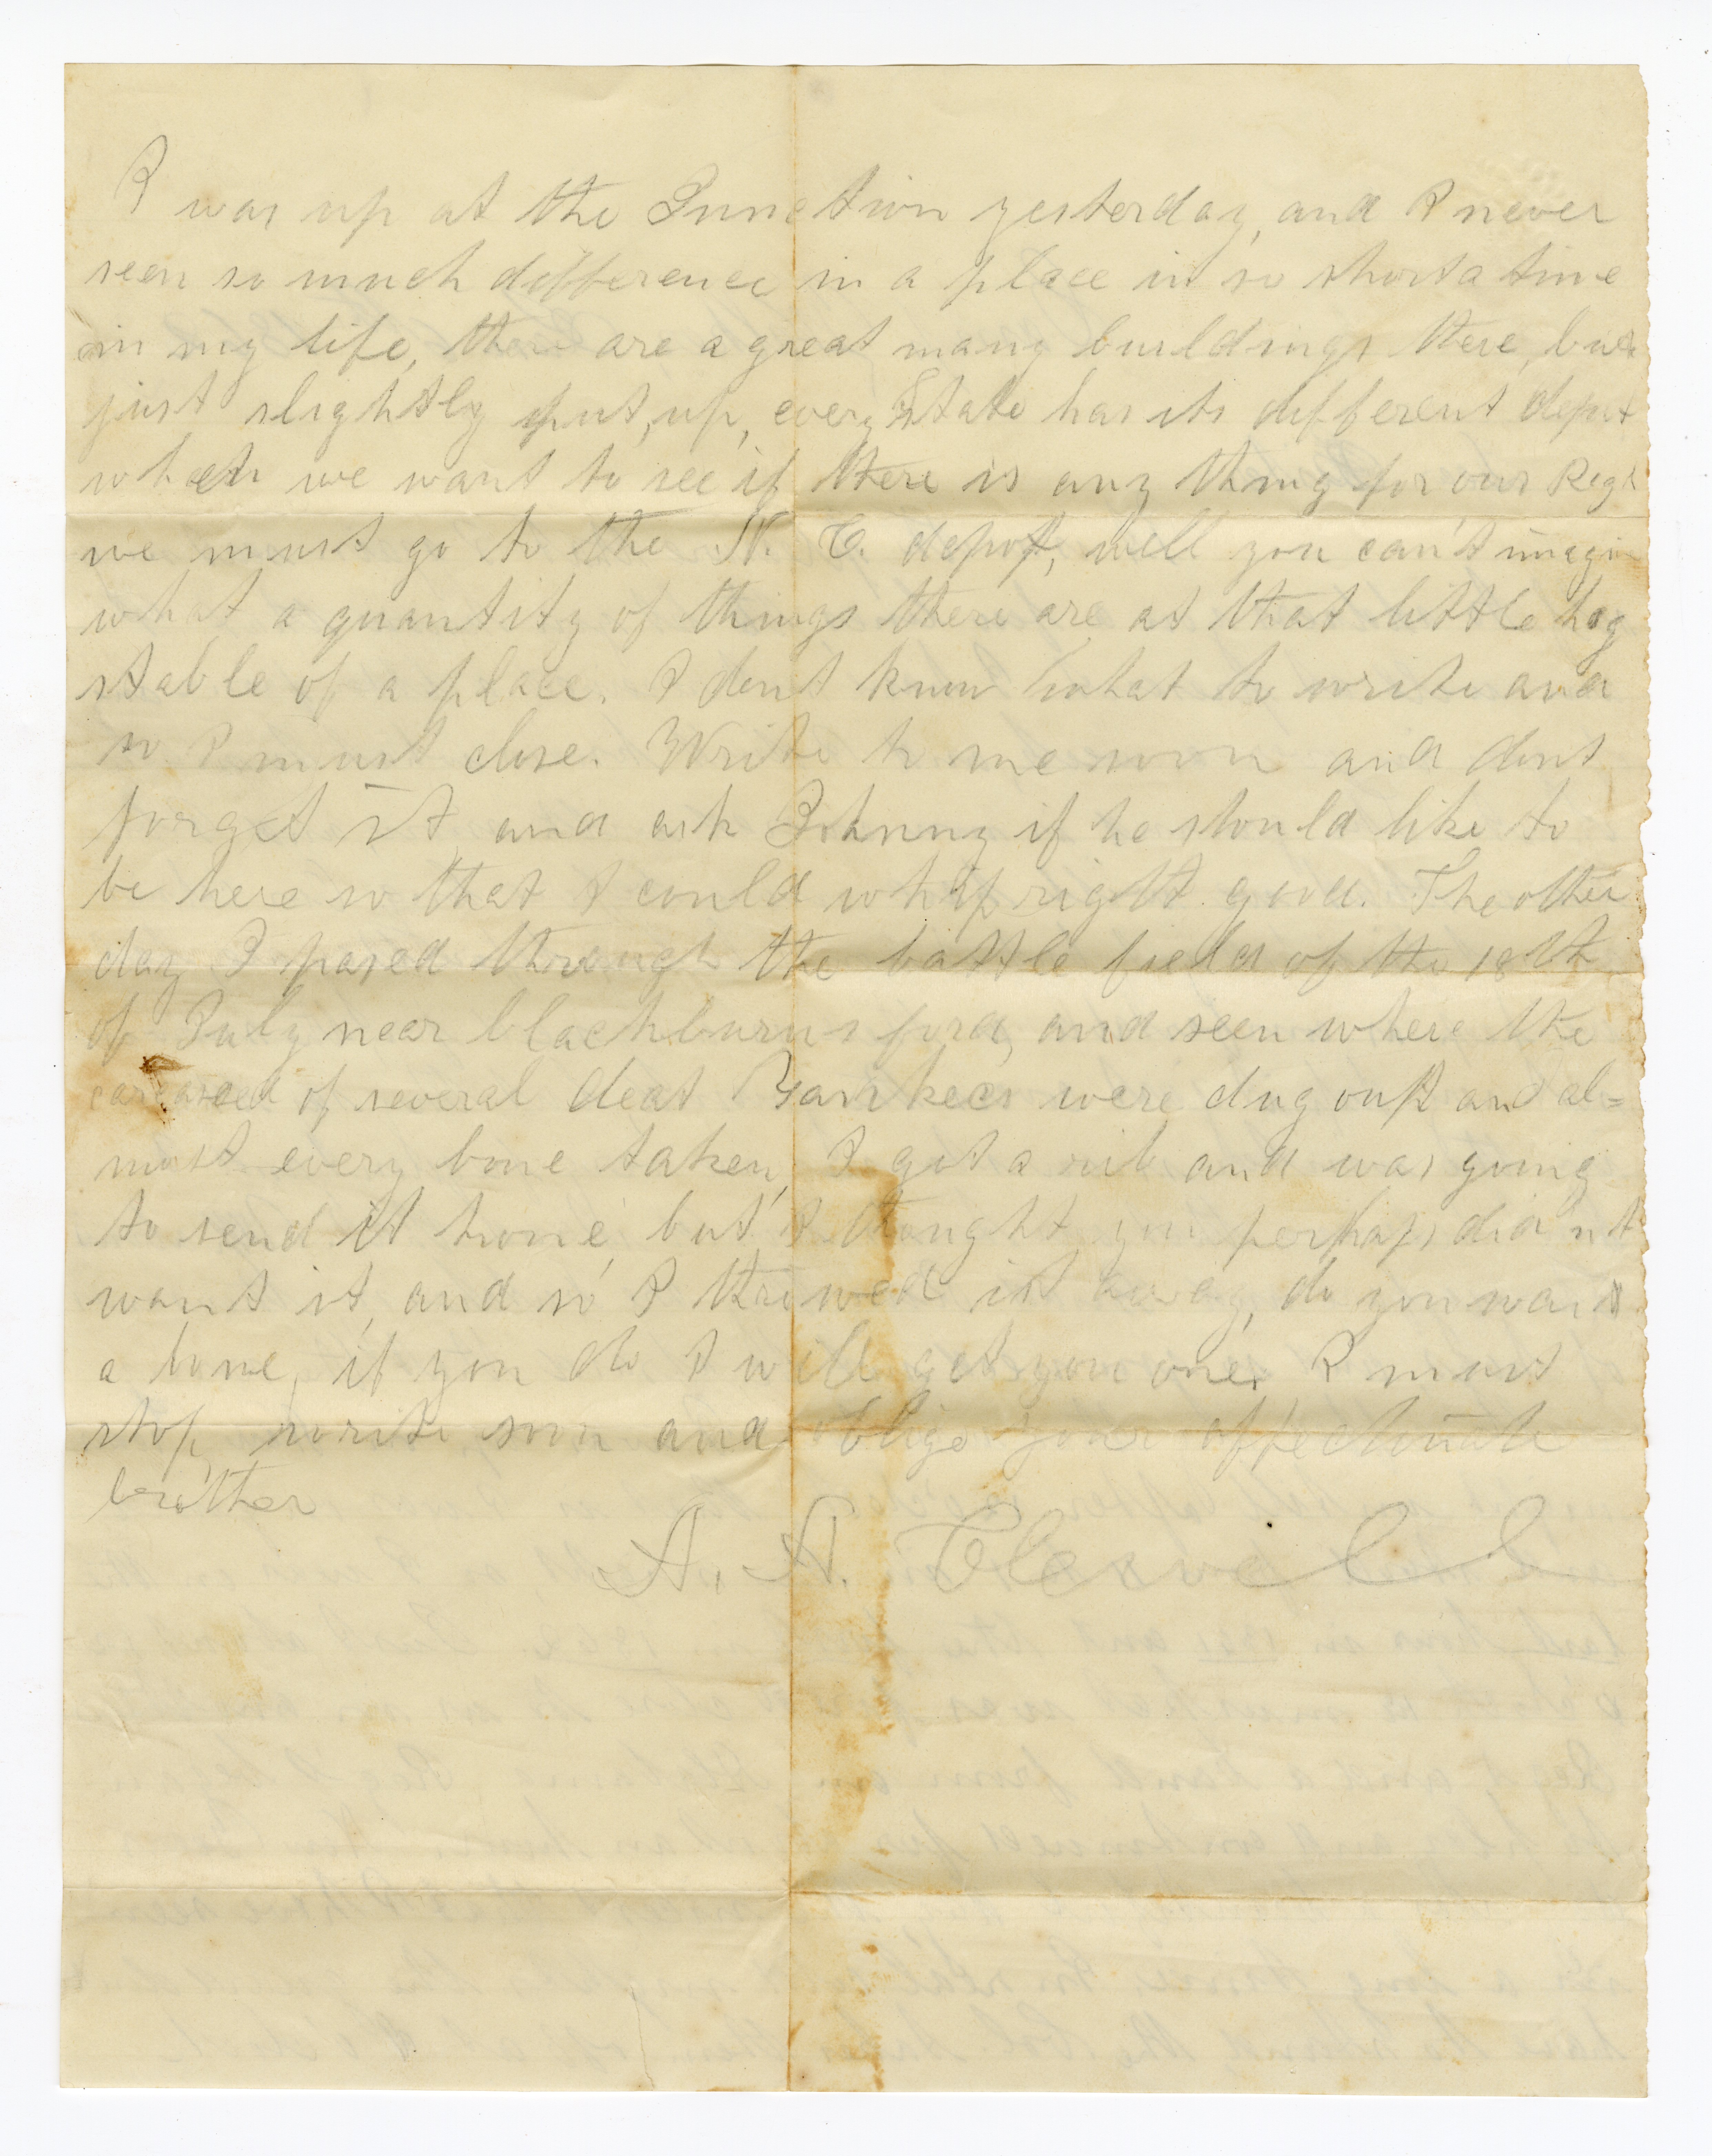 I was up at the Junction yesterday, and I never
seen so much difference in a place in so short a time
in my life, there are a great many buildings there, but
just slightly put, up, every State has its different depot
when we want to see if there is any thing for our Regt
we must go to the N. C. depot, well you can't imagin
what a quantity of things there are at that little hog
stable of a place. I dont know what to write and
so I must close. Write to me soon and dont
forget it and ask Johnny if he should like to
be here so that I could whip right good. The other
day I pased through the battle field of the 18th
of July near blackburns ford, and seen where the
of several deat Yankees were dug out and al=
most every bone taken, I got a rib and was going
to send it home, but I thought you perhaps did n't
want it, and so I throwed it away, do you want
a bone, if you do I will get you one. I must
stop, write soon and oblige your affectionate
brother
A. A. Clewell